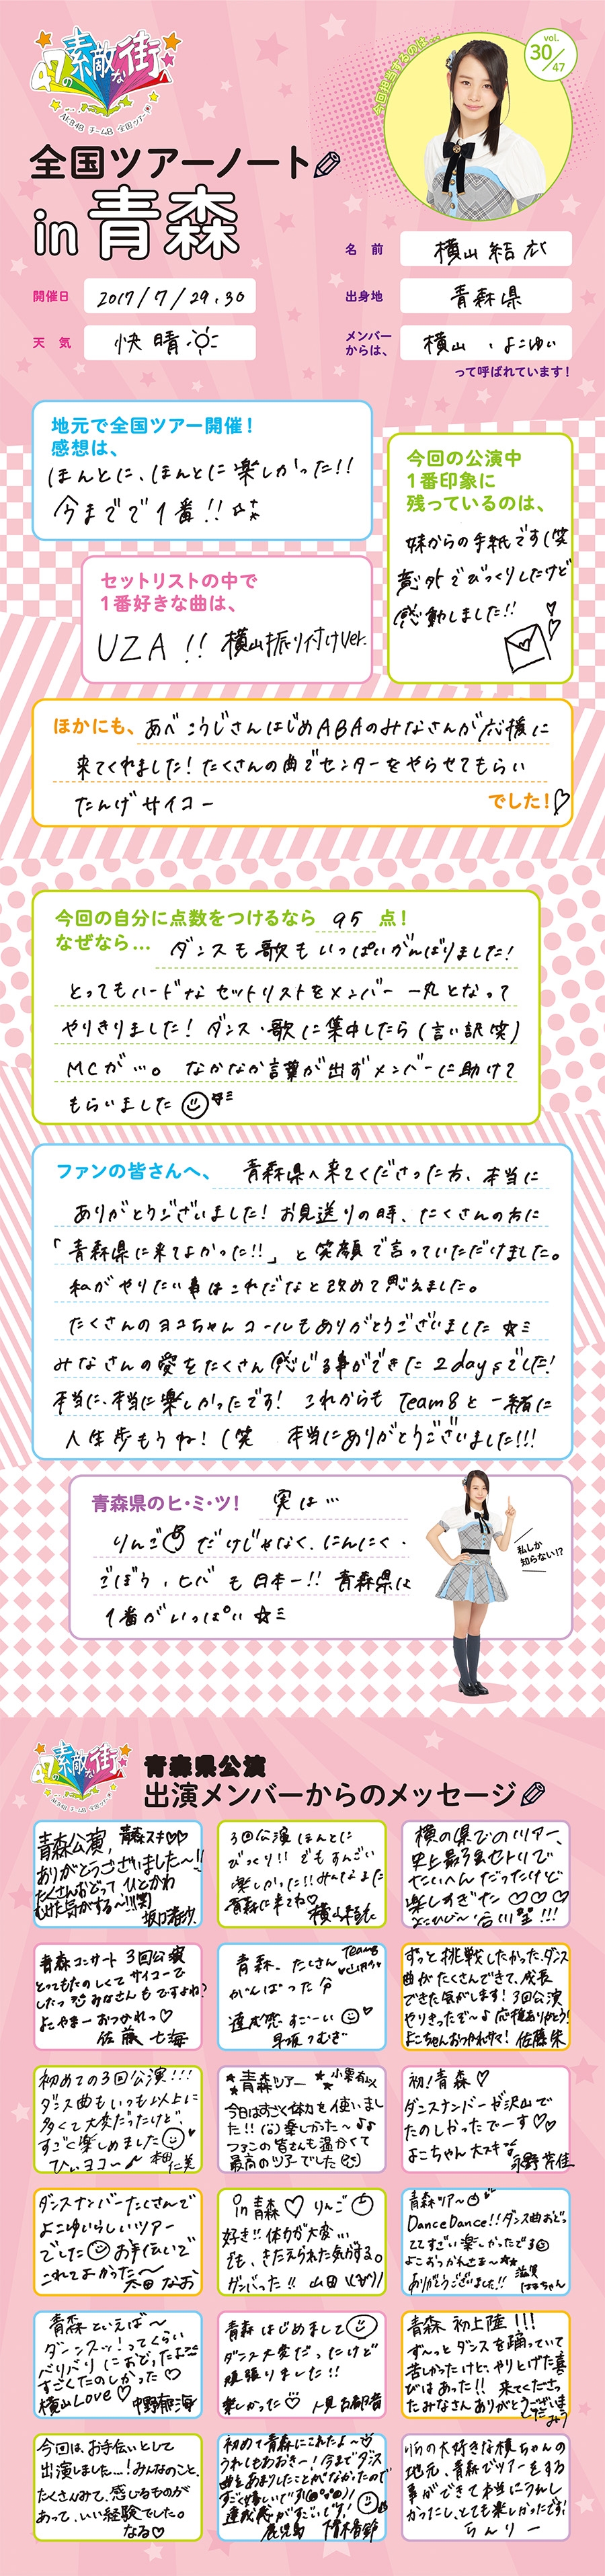 47の素敵な街へ
AKB48 チーム8 全国ツアー
今回担当するのは…
vol.
30/47
全国ツアーノート
in 青森
名前 横山 結衣
開催日 2017/7/29.30
出身地 青森県
天気 快晴
メンバーからは、 横山、よこゆい
って呼ばれています!
地元で全国ツアー開催!
感想は、
ほんとに、ほんとに楽しかった!!
今までで1番!!
今回の公演中
1番印象に
残っているのは、
妹からの手紙です(笑
意外でびっくりしたけど
感動しました!!
セットリストの中で
1番好きな曲は、
UZA!! 横山振り付けver.
ほかにも、あべこうじさんはじめABAのみなさんが応援に
来てくれました!たくさんの曲でセンターをやらせてもらい
たんげサイコー
でした!♡
今回の自分に点数をつけるなら 95 点!
なぜなら… ダンスも歌もいっぱいがんばりました!
とってもハードなセットリストをメンバー一丸となって
やりきりました!ダンス・歌に集中したら(言い訳笑)
MCが…。なかなか言葉が出ずメンバーに助けて
もらいました
ファンの皆さんへ、 青森県へ来てくださった方、本当に
ありがとうございました!お見送りの時、たくさんの方に
「青森県に来てよかった!!」と笑顔で言っていただけました。
私がやりたい事はこれだなと改めて思えました。
たくさんのヨコちゃんコールもありがとうございました☆ミ
みなさんの愛をたくさん感じる事ができた2daysでした!
本当に、本当に楽しかったです! これからもTeam8と一緒に
人生歩もうね!(笑 本当にありがとうございました!!!
青森県のヒ・ミ・ツ! 実は…
りんごだけじゃなく、にんにく・
ごぼう、ヒバも日本一!!青森県は
1番がいっぱい☆ミ
私しか
知らない!?
47の素敵な街へ
AKB48 チーム8 全国ツアー
青森県公演
出演メンバーからのメッセージ
青森公演、青森スキ♡♡
ありがとうございました〜!!
たくさんおどって ひとかわ
むけた気がする〜!!(笑)
坂口渚沙
3回公演ほんとに
びっくり!!でもすんごい
楽しかった!!みんなまた
青森に来てね♡
横山結衣
横の県でのツアー、
史上最強セトリで
たいへんだったけど
楽しすぎた♡♡♡
谷川聖!!!
青森コンサート 3回公演
とってもたのしくてサイコーで
したっ みなさんもですよね?
よこやまー おつかれっ♡
佐藤 七海
青森、たくさん
Team8
がんばった分
達成感すごーい
早坂つむぎ
ずっと挑戦したかった、ダンス
曲がたくさんできて、成長
できた気がします!3回公演
やりきったぞ〜♪応援ありがとう!
よこちゃんおつかれサマ! 佐藤栞
初めての3回公演!!!
ダンス曲もいつも以上に
多くて大変だったけど
すごく楽しめました
ひぃヨコ〜♪ 本田仁美
青森ツアー 小栗有以
今日はすごく体力を使いまし
た!!楽しかった〜♪♪
ファンの皆さんも温かくて
最高のツアーでした
初!青森♡
ダンスナンバーが沢山で
たのしかったでーす♡♡
よこちゃん大スキ
永野芹佳
ダンスナンバーたくさんで
よこゆいらしいツアー
でした お手伝いで
これてよかった〜
太田 なお
in 青森 ♡ りんご
好き!!体力が大変…
でも、きたえられた気がする。
ガンバった!! 山田
青森ツアー
Dance Dance!!ダンス曲おどっ
ててすごい楽しかったです
よこおつかれさま〜
ありがとうございました!! 滋賀
はまちゃん
青森といえば〜
ダンスッ!ってくらい
バリバリにおどったよ
すごくたのしかった♡
横山Love♡ 中野郁海
青森はじめまして
ダンス大変だったけど
頑張りました!!
楽しかった♡ 人見古都音
青森 初上陸!!!
ず〜っとダンスを踊っていて
苦しかったけど、やりとげた喜
びはあった!! 来てくださっ
たみなさんありがとうございま
した みう
今回は、お手伝いとして
出演しました…!みんなのこと、
たくさんみて、感じるものが
あって、いい経験でした。
なる♡
初めて青森にこれたよ〜♡
うれしもあおきー!今までダンス
曲をあまりしたことがなかったので
すごく嬉しいです!
達成感がすごいです!
鹿児島 下青木香鈴
りんの大好きな横ちゃんの
地元、青森でツアーをする
事ができて本当にうれし
かったし、とても楽しかったです!
りんりー